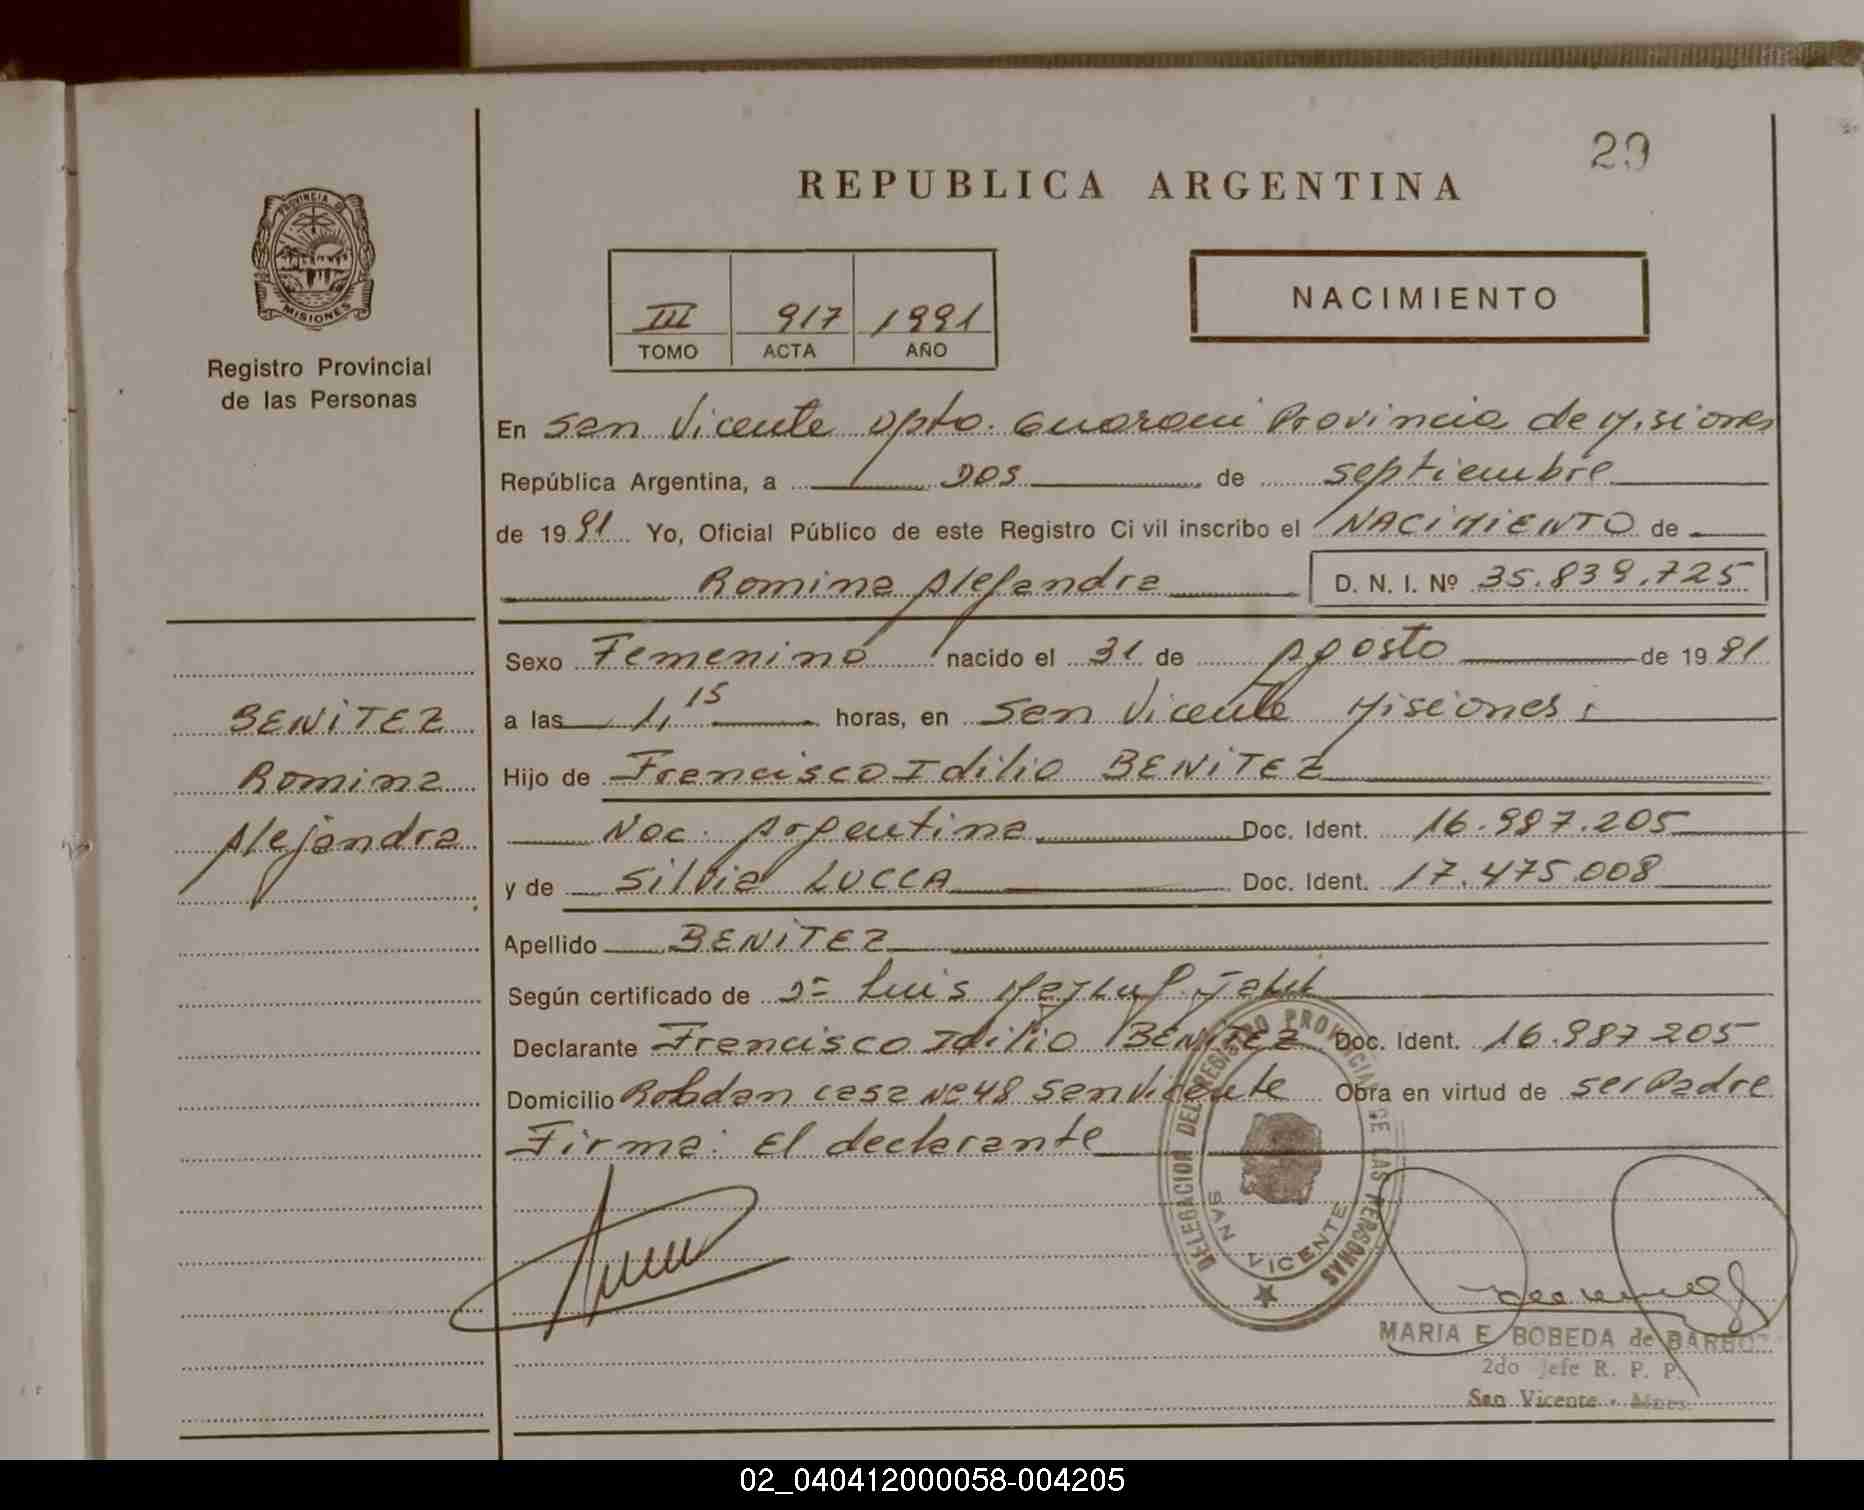 29
REPUBLICA ARGENTINA
PROVINCIA DE
MISIONES
Registro Provincial
de las Personas
III 917 1991
TOMO ACTA AÑO
NACIMIENTO
En San Vicente Dpto. Guarani Provincia de Misiones
República Argentina, a DOS de septiembre
de 1991 Yo, Oficial Público de este Registro Civil inscribo el NACIMIENTO de
Romina Alejandra D. N. I. Nº 35.839.725
Sexo Femenino nacido el 31 de Agosto de 1991
a las 1,15 horas, en San Vicente Misiones;
Hijo de Francisco Idilio BENITEZ
Nac. Argentina Doc. Ident. 16.987.205
y de Silvia LUCCA Doc. Ident. 17.475.008
Apellido BENITEZ
Según certificado de Dº Luis
Declarante Francisco Idilio BENITEZ Doc. Ident. 16.987.205
Domicilio casa Nº 48 San Vicente Obra en virtud de ser Padre
Firma: El declarante
BENITEZ
Romina
Alejandra
DELEGACION DEL REGISTRO PROVINCIAL DE LAS PERSONAS
SAN VICENTE
MARIA E BOBEDA de
2do Jefe R. P. P.
San Vicente - Mnes.
02_040412000058-004205